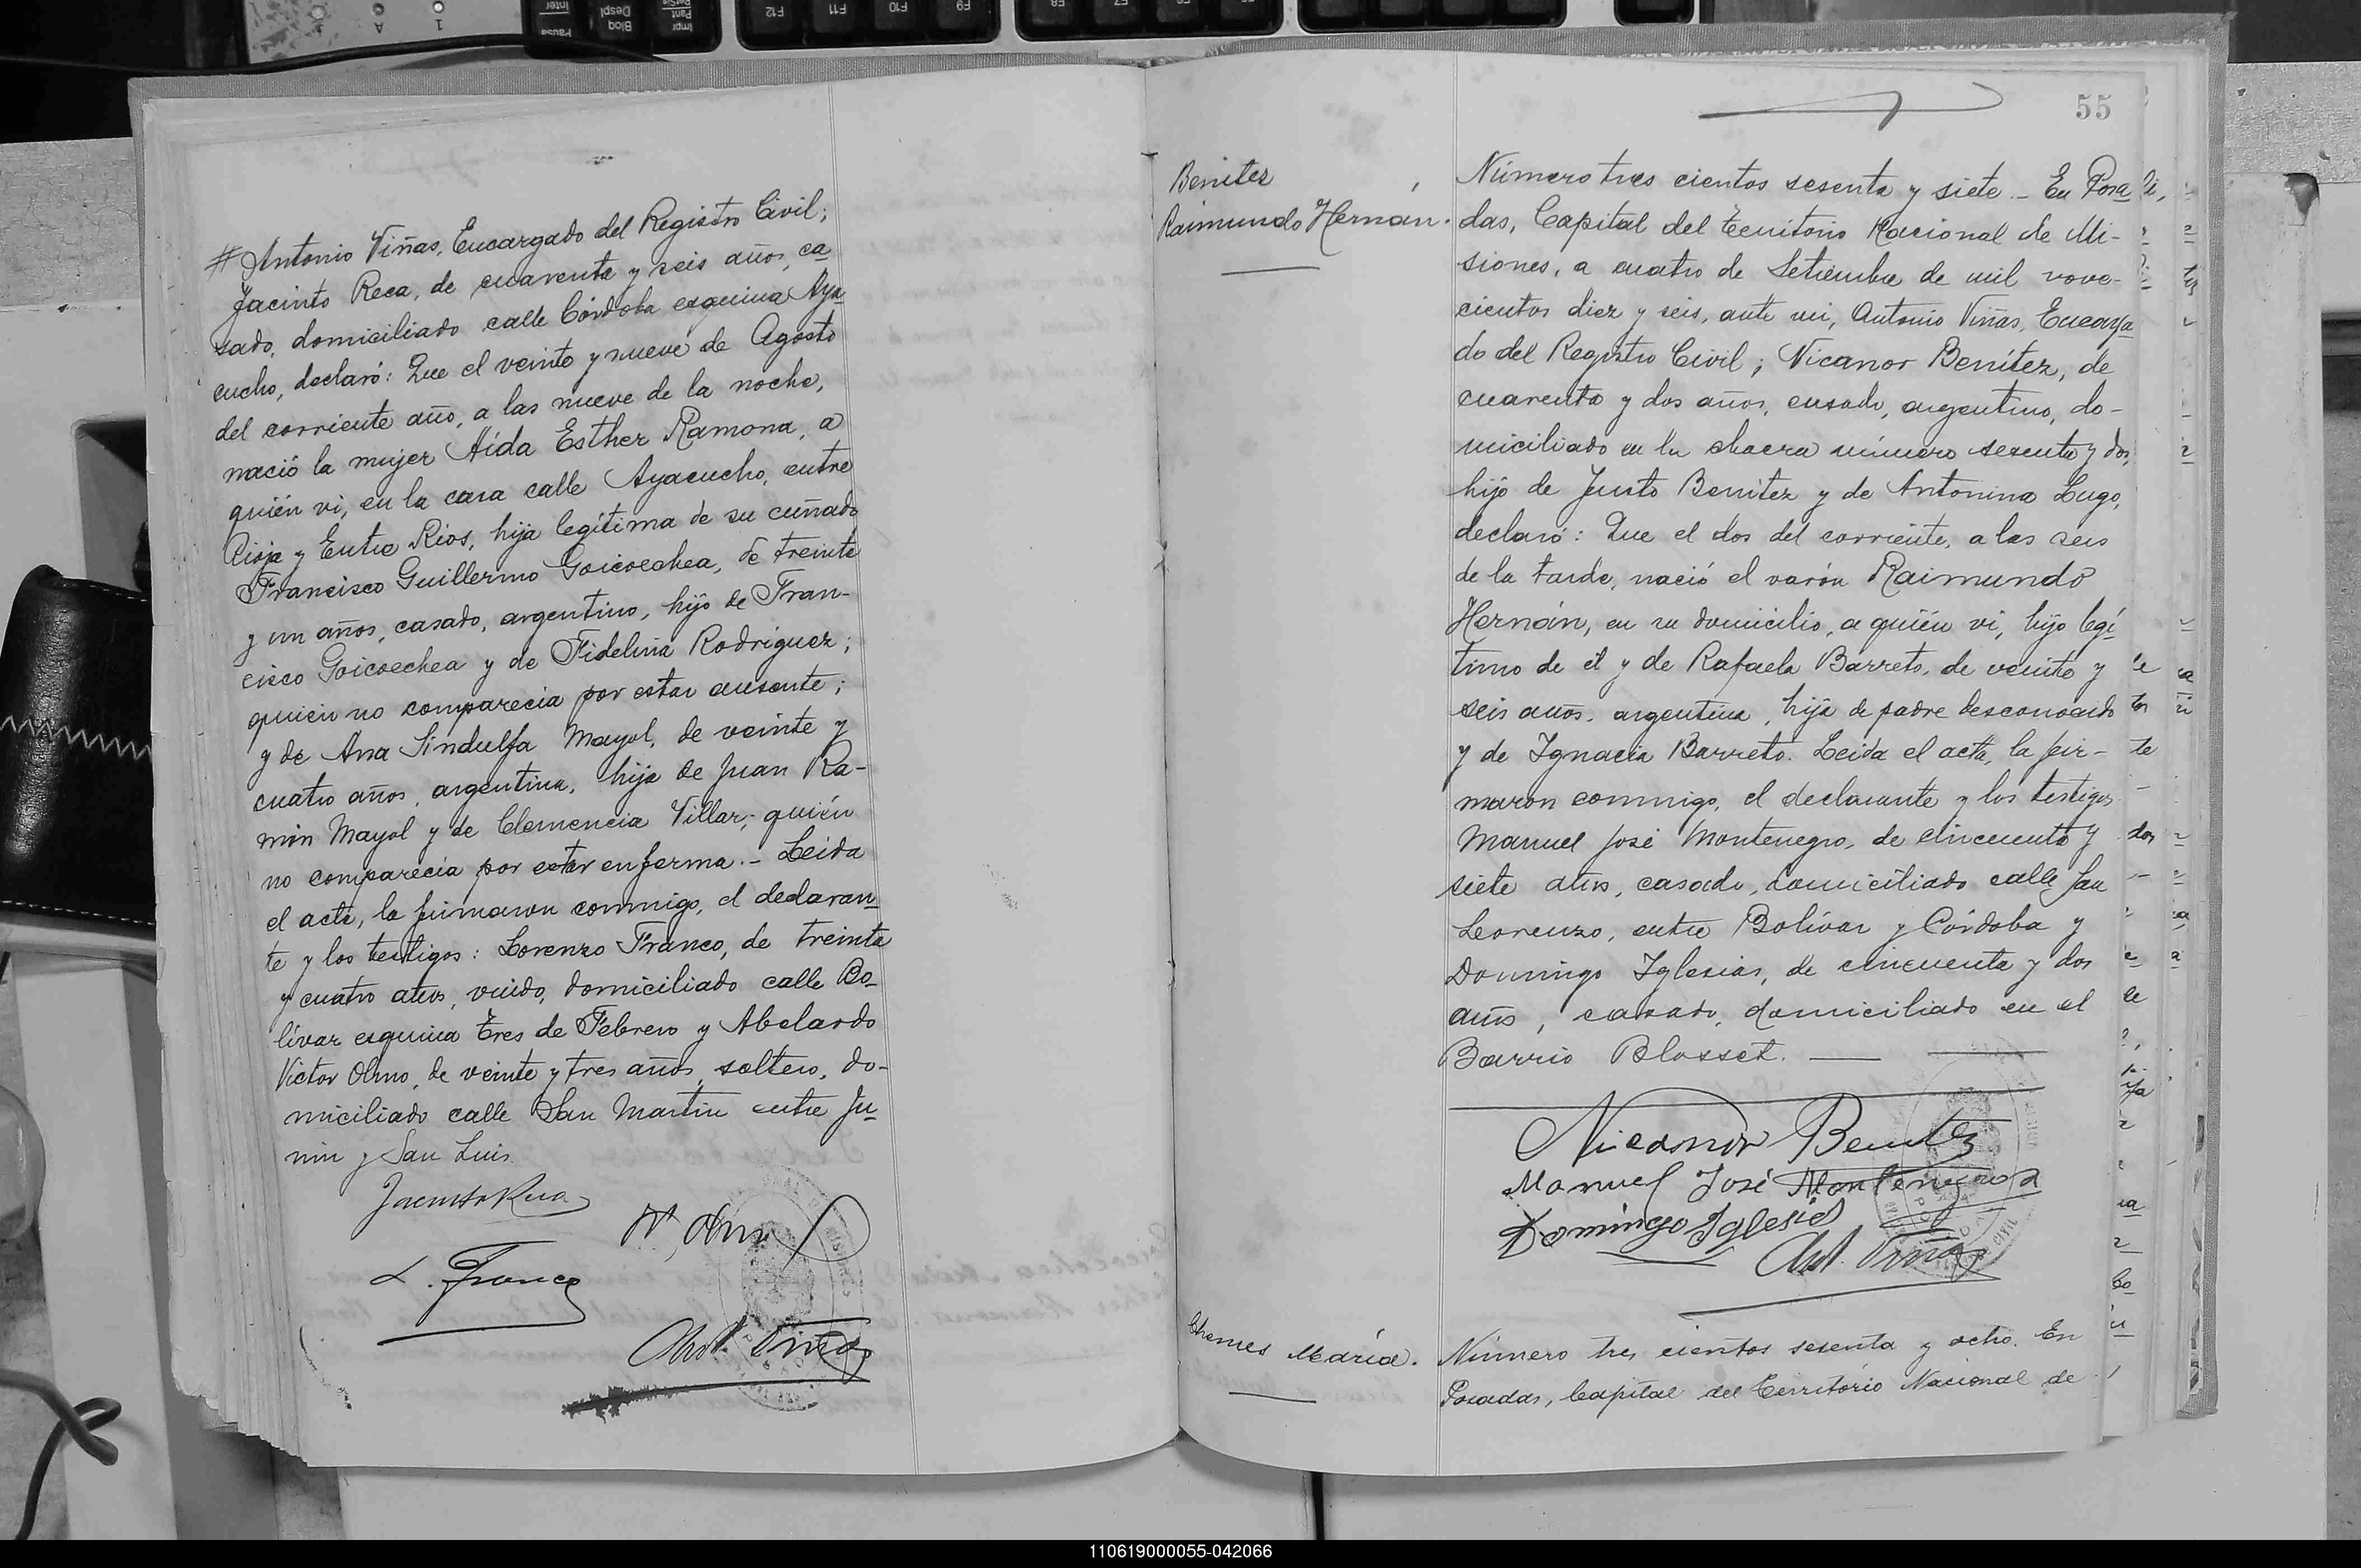 # Antonio Viñas, Encargado del Registro Civil;
Jacinto Reca, de cuarenta y seis años, ca
sado, domiciliado calle Córdoba esquina Aya
cucho, declaró: Que el veinte y nueve de Agosto
del corriente año, a las nueve de la noche,
nació la mujer Aída Esther Ramona, a
quién vi, en la casa calle Ayacucho, entre
Rioja y Entre Rios, hija legítima de su cuñado
Francisco Guillermo Goicoechea, de treinta
y un años, casado, argentino, hijo de Fran-
cisco Goicoechea y de Fidelina Rodriguez;
quien no comparecia por estar ausente;
y de Ana Sindulfa Mayol, de veinte y
cuatro años, argentina, hija de Juan Ra-
món Mayol y de Clemencia Villar; quién
no comparecia por estar enferma.- Leida
el acta, la firmaron conmigo, el declaran
te y los testigos: Lorenzo Franco, de treinta
y cuatro años, viudo, domiciliado calle Bo-
lívar esquina tres de Febrero y Abelardo
Victor Olmo, de veinte y tres años, soltero, do-
miciliado calle San Martin entre Ju
nin y San Luis.
Jacinto Reca
L. Franco
Ant. Viñas
55
Benitez
Raimundo Hernán.
Número tres cientos sesenta y siete.- En Posa
das, Capital del Territorio Nacional de Mi-
siones, a cuatro de Setiembre de mil nove-
cientos diez y seis, ante mi, Antonio Viñas, Encarga
do del Registro Civil; Nicanor Benítez, de
cuarenta y dos años, casado, argentino, do-
miciliado en la chacra número sesenta y dos,
hijo de Justo Benitez y de Antonina Lugo,
declaró: Que el dos del corriente, a las seis
de la tarde, nació el varón Raimundo
Hernán, en su domicilio, a quién vi, hijo legí
timo de él y de Rafaela Barreto, de veinte y
seis años, argentina, hija de padre desconocido
y de Ignacia Barreto. Leida el acta, la fir-
maron conmigo, el declarante y los testigos
Manuel José Montenegro, de cincuenta y
siete años, casado, domiciliado calle San
Lorenzo, entre Bolívar y Córdoba y
Domingo Iglesias, de cincuenta y dos
años, casado, domiciliado en el
Barrio Blosset.
Nicanor Benitez
Manuel José Montenegro
Domingo Iglesias
Ant. Viñas
Chemes María.
Número tres cientos sesenta y ocho. En
Posadas, Capital del Territorio Nacional de
110619000055-042066